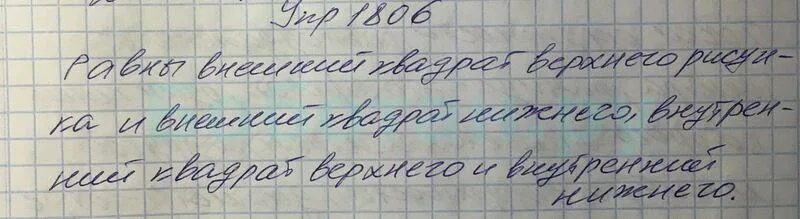 Упр 1806
Равны внешний квадрат верхнего рисун-
ка и внешний квадрат нижнего, внутрен-
ний квадрат верхнего и внутренний
нижнего.